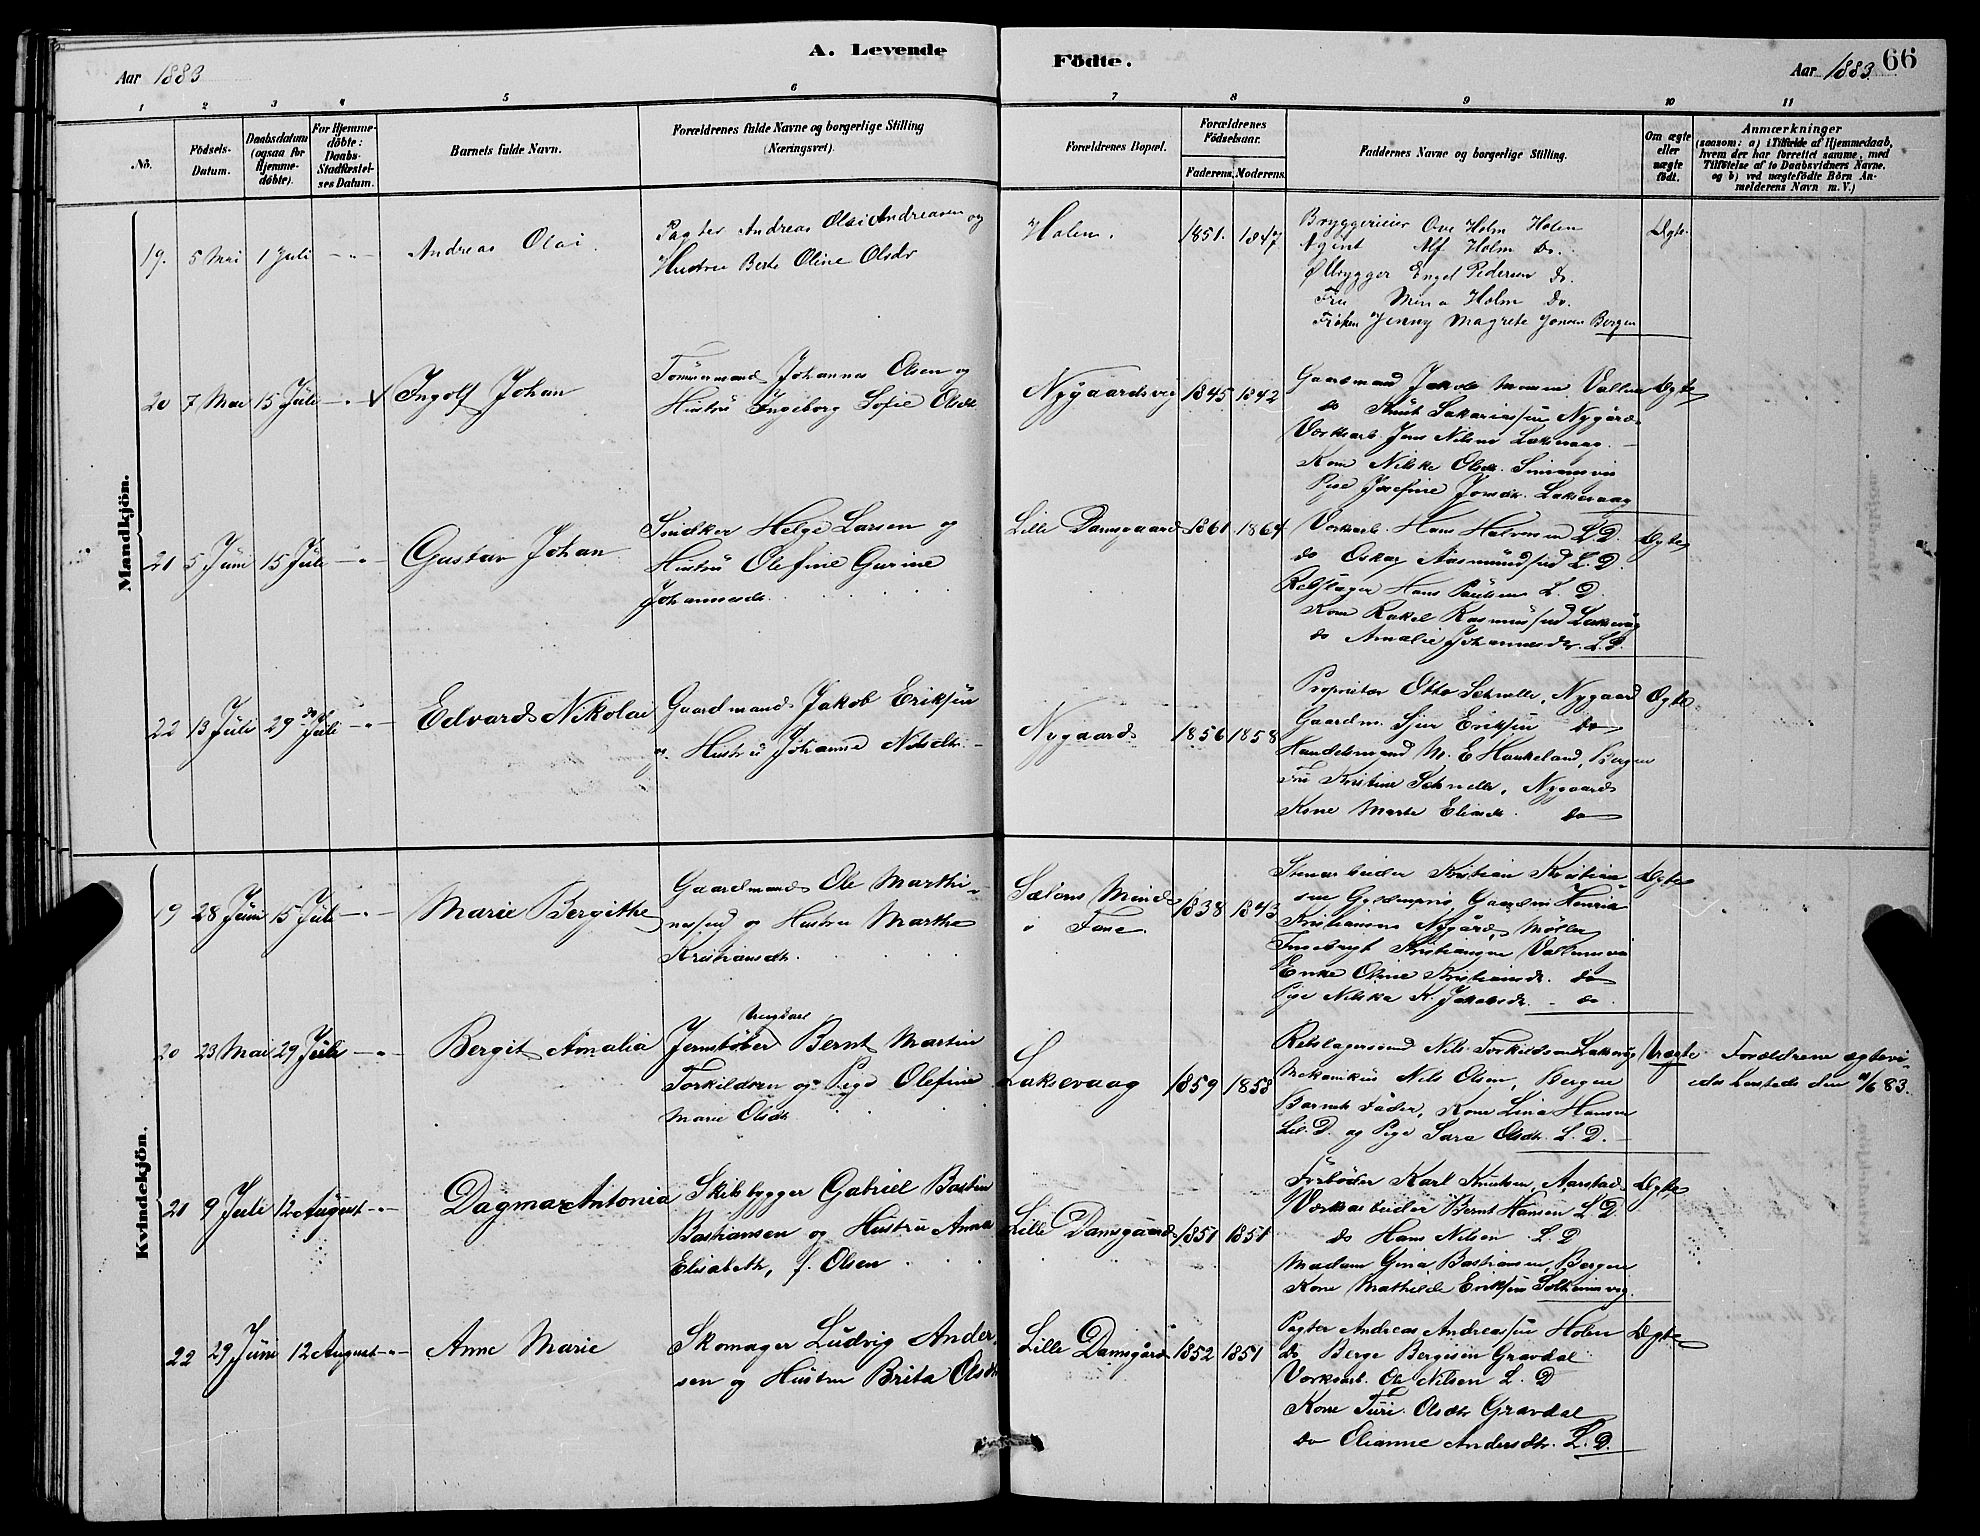 A. Levende
Födte.
66
Aar 1883
Aar 1883
1 2 3 4 5 6 7 8 9 10 11
No.
Födsels-Datum.
Daabsdatum (ogsaa for Hjemme-döbte).
For Hjemme-döbte: Daabs-Stadfæstel-ses Datum.
Barnets fulde Navn.
Forældrenes fulde Navne og borgerlige Stilling
(Næringsvei).
Forældrenes Bopæl.
Forældrenes Födselsaar.
Faderens. Moderens.
Faddernes Navne og borgerlige Stilling.
Om ægte eller uægte födt.
Anmærkninger
(saasom: a) i Tilfælde af Hjemmedaab,
hvem der har forrettet samme, med
Tilföielse af to Daabsvidners Navne,
og b) ved uægtefödte Börn An-
melderens Navn m. V.)
Mandkjön.
19. 5 Mai 1 Juli - " - Andreas Olai.
Pagter Andreas Olai Andreasen og
Hustru Berte Oline Olsdr
Holen. 1851. 1847
Bryggerieier Ove Holm Holen
Agent Alf Holm Do.
Ølbrygger Engel Pedersen Do.
Fru Mina Holm do.
Frøken Jenny Magrete Jonsen Bergen
Ægte.
20 7 Mai 15 Juli - " - Ingolf Johan
Tømmermand Johannes Olsen og
Hustru Ingeborg Sofie Olsdtr
Nygaardsvig 1845 1842
Gaardmand Jakob Monsen Vallen
do Knut Sakariassen Nygård
Værksarb. Jens Nilsen Laksevaag. -
Kone Nilske Olsdtr. Simonsvig
Pige Josefine Jonsdtr. Laksevaag
Ægte
21 5 Juni 15 Juli - " - Gustav Johan
Snedker Helge Larsen og
Hustru Olefine Gurine
Johannesdtr.
Lille Damsgaard 1861 1864
Værksarb. Hans Halvorsen L. D.
do Oskar Aasmundsen L. D.
Rebslager Hans Paulsen L. D.
Kone Rakel Rasmussen Laksevåg
do Amalie Johannesdtr. L. D.
Ægte
22 13 Juli 29de Juli - " - Edvard Nikolai
Gaardmand Jakob Eriksen
og Hustru Johanne Nilsdtr. -
Nygaard 1856 1858
Proprietær Otto Schnelle, Nygaard
Gaardm. Sjur Eriksen do
Handelsmand M. E Haukeland, Bergen
Fru Kristine Schnelle, Nygaard
Kone Marte Eliasdtr. do
Ægte
Kvindekjön.
19 28 Juni 15 Juli - " - Marie Bergithe
Gaardmand Ole Marthi-
nessen og Hustru Marthe
Kristiansdtr.
Sælens Minde
" Fane. 1838 1843
Stenarbeider Kristian Kristian-
sen Gyldenpris, Gaardm Henrik
Kristiansen Nygård, Møller
Ingebrigt Kristiansen Vallen
Enke Oline Kristiansdtr. do
Pige Nilske K. Jakobsdtr. - do.
Ægte
20 23 Mai 29 Juli - " - Bergit Amalia
Ungkarl
Jernstøber Bernt Martin
Torkildsen og Pige Olefine
Marie Olsdtr.
Laksevaag 1859 1858
Rebslagersvend Nils Torkildsen Laksevåg
Mekanikus Nils Olsen, Bergen
Barnets Fader, Kone Lina Hansen
Lil. D. og Pige Sara Olsdtr. L. D. -
Uægte
Forældrene ægtevi-
edes herstede den /6 83.
21 9 Juli 12 August - " - Dagmar Antonia
Skibsbygger Gabriel Bastin
Bastiansen og Hustru Anna
Elisabeth, f. Olsen
Lille Damsgaard 1851 1851
Forbøder Karl Knutsen, Aarstad
Værksarbeider Bernt Hansen L. D.
do Hans Nilsen L D
Madam Gina Bastiansen, Bergen
Kone Mathilde Eriksen Solheimsvig.
Ægte
22 29 Juni 12 August - " - Anne Marie
Skomager Ludvig Ander-
sen og Hustru Brita Olsdtr
Lille Damsgård 1852 1851
Pagter Andreas Andreassen Holen
do Berge Bergesen Gravdal
Værksarb. Ole Nilsen L. D
Kone Turi Olsdtr Gravdal
do Olianne Andersdtr. L. D.
Ægte